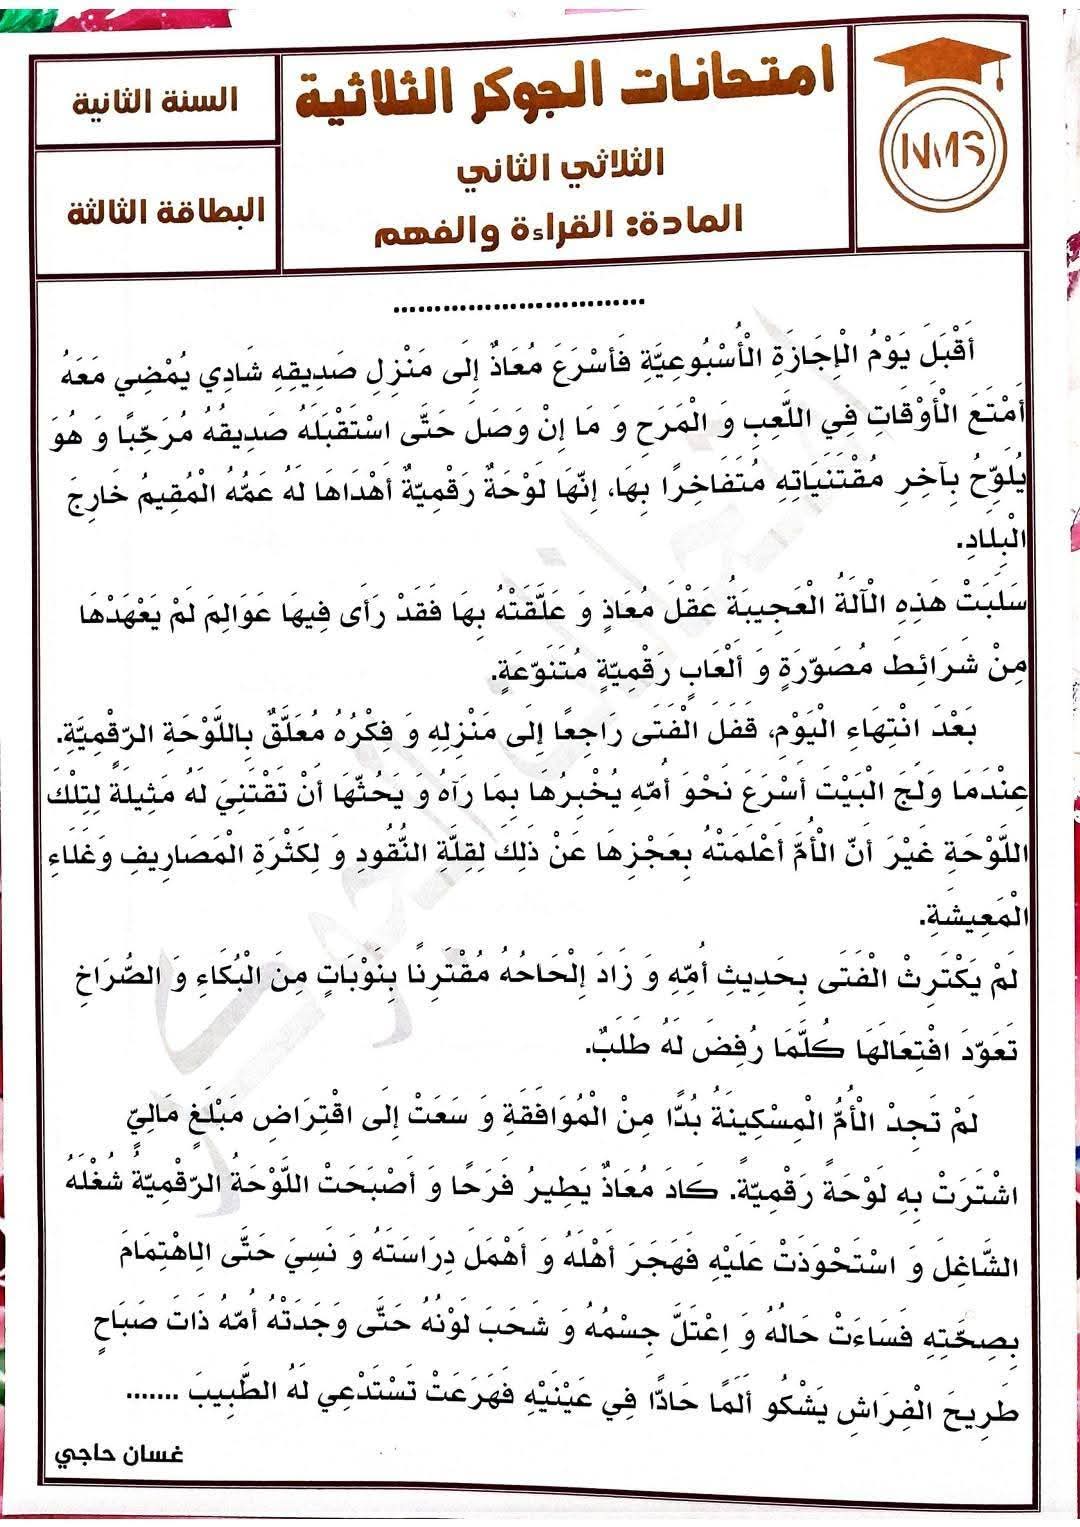 امتحانات الجوكر الثلاثية
الثلاثي الثاني
المادة: القراءة والفهم
السنة الثانية
البطاقة الثالثة
NMS
..............................
أَقْبَلَ يَوْمُ الْإِجَازَةِ الْأُسْبُوعِيَّةِ فَأَسْرَعَ مُعَاذٌ إِلَى مَنْزِلِ صَدِيقِهِ شَادِي يُمْضِي مَعَهُ
أَمْتَعَ الْأَوْقَاتِ فِي اللَّعِبِ وَ الْمَرَحِ وَ مَا إِنْ وَصَلَ حَتَّى اسْتَقْبَلَهُ صَدِيقُهُ مُرَحِّبًا وَ هُوَ
يُلَوِّحُ بِآخِرِ مُقْتَنَيَاتِهِ مُتَفَاخِرًا بِهَا، إِنَّهَا لَوْحَةٌ رَقْمِيَّةٌ أَهْدَاهَا لَهُ عَمُّهُ الْمُقِيمُ خَارِجَ
الْبِلَادِ.
سَلَبَتْ هَذِهِ الْآلَةُ الْعَجِيبَةُ عَقْلَ مُعَاذٍ وَ عَلَّقَتْهُ بِهَا فَقَدْ رَأَى فِيهَا عَوَالِمَ لَمْ يَعْهَدْهَا
مِنْ شَرَائِطَ مُصَوَّرَةٍ وَ أَلْعَابٍ رَقْمِيَّةٍ مُتَنَوِّعَةٍ.
بَعْدَ انْتِهَاءِ الْيَوْمِ، قَفَلَ الْفَتَى رَاجِعًا إِلَى مَنْزِلِهِ وَ فِكْرُهُ مُعَلَّقٌ بِاللَّوْحَةِ الرَّقْمِيَّةِ.
عِنْدَمَا وَلَجَ الْبَيْتَ أَسْرَعَ نَحْوَ أُمِّهِ يُخْبِرُهَا بِمَا رَآهُ وَ يَحُثُّهَا أَنْ تَقْتَنِيَ لَهُ مَثِيلَةً لِتِلْكَ
اللَّوْحَةِ غَيْرَ أَنَّ الْأُمَّ أَعْلَمَتْهُ بِعَجْزِهَا عَنْ ذَلِكَ لِقِلَّةِ النُّقُودِ وَ لِكَثْرَةِ الْمَصَارِيفِ وَغَلَاءِ
الْمَعِيشَةِ.
لَمْ يَكْتَرِثْ الْفَتَى بِحَدِيثِ أُمِّهِ وَ زَادَ إِلْحَاحُهُ مُقْتَرِنًا بِنَوْبَاتٍ مِنَ الْبُكَاءِ وَ الصُّرَاخِ
تَعَوَّدَ افْتِعَالَهَا كُلَّمَا رُفِضَ لَهُ طَلَبٌ.
لَمْ تَجِدْ الْأُمُّ الْمِسْكِينَةُ بُدًّا مِنْ الْمُوَافَقَةِ وَ سَعَتْ إِلَى اقْتِرَاضِ مَبْلَغٍ مَالِيٍّ
اشْتَرَتْ بِهِ لَوْحَةً رَقْمِيَّةً. كَادَ مُعَاذٌ يَطِيرُ فَرَحًا وَ أَصْبَحَتْ اللَّوْحَةُ الرَّقْمِيَّةُ شُغْلَهُ
الشَّاغِلَ وَ اسْتَحْوَذَتْ عَلَيْهِ فَهَجَرَ أَهْلَهُ وَ أَهْمَلَ دِرَاسَتَهُ وَ نَسِيَ حَتَّى الِاهْتِمَامَ
بِصِحَّتِهِ فَسَاءَتْ حَالُهُ وَ اِعْتَلَّ جِسْمُهُ وَ شَحَبَ لَوْنُهُ حَتَّى وَجَدَتْهُ أُمُّهُ ذَاتَ صَبَاحٍ
طَرِيحَ الْفِرَاشِ يَشْكُو أَلَمًا حَادًّا فِي عَيْنَيْهِ فَهَرَعَتْ تَسْتَدْعِي لَهُ الطَّبِيبَ .......
غسان حاجي
امتحانات الجوكر